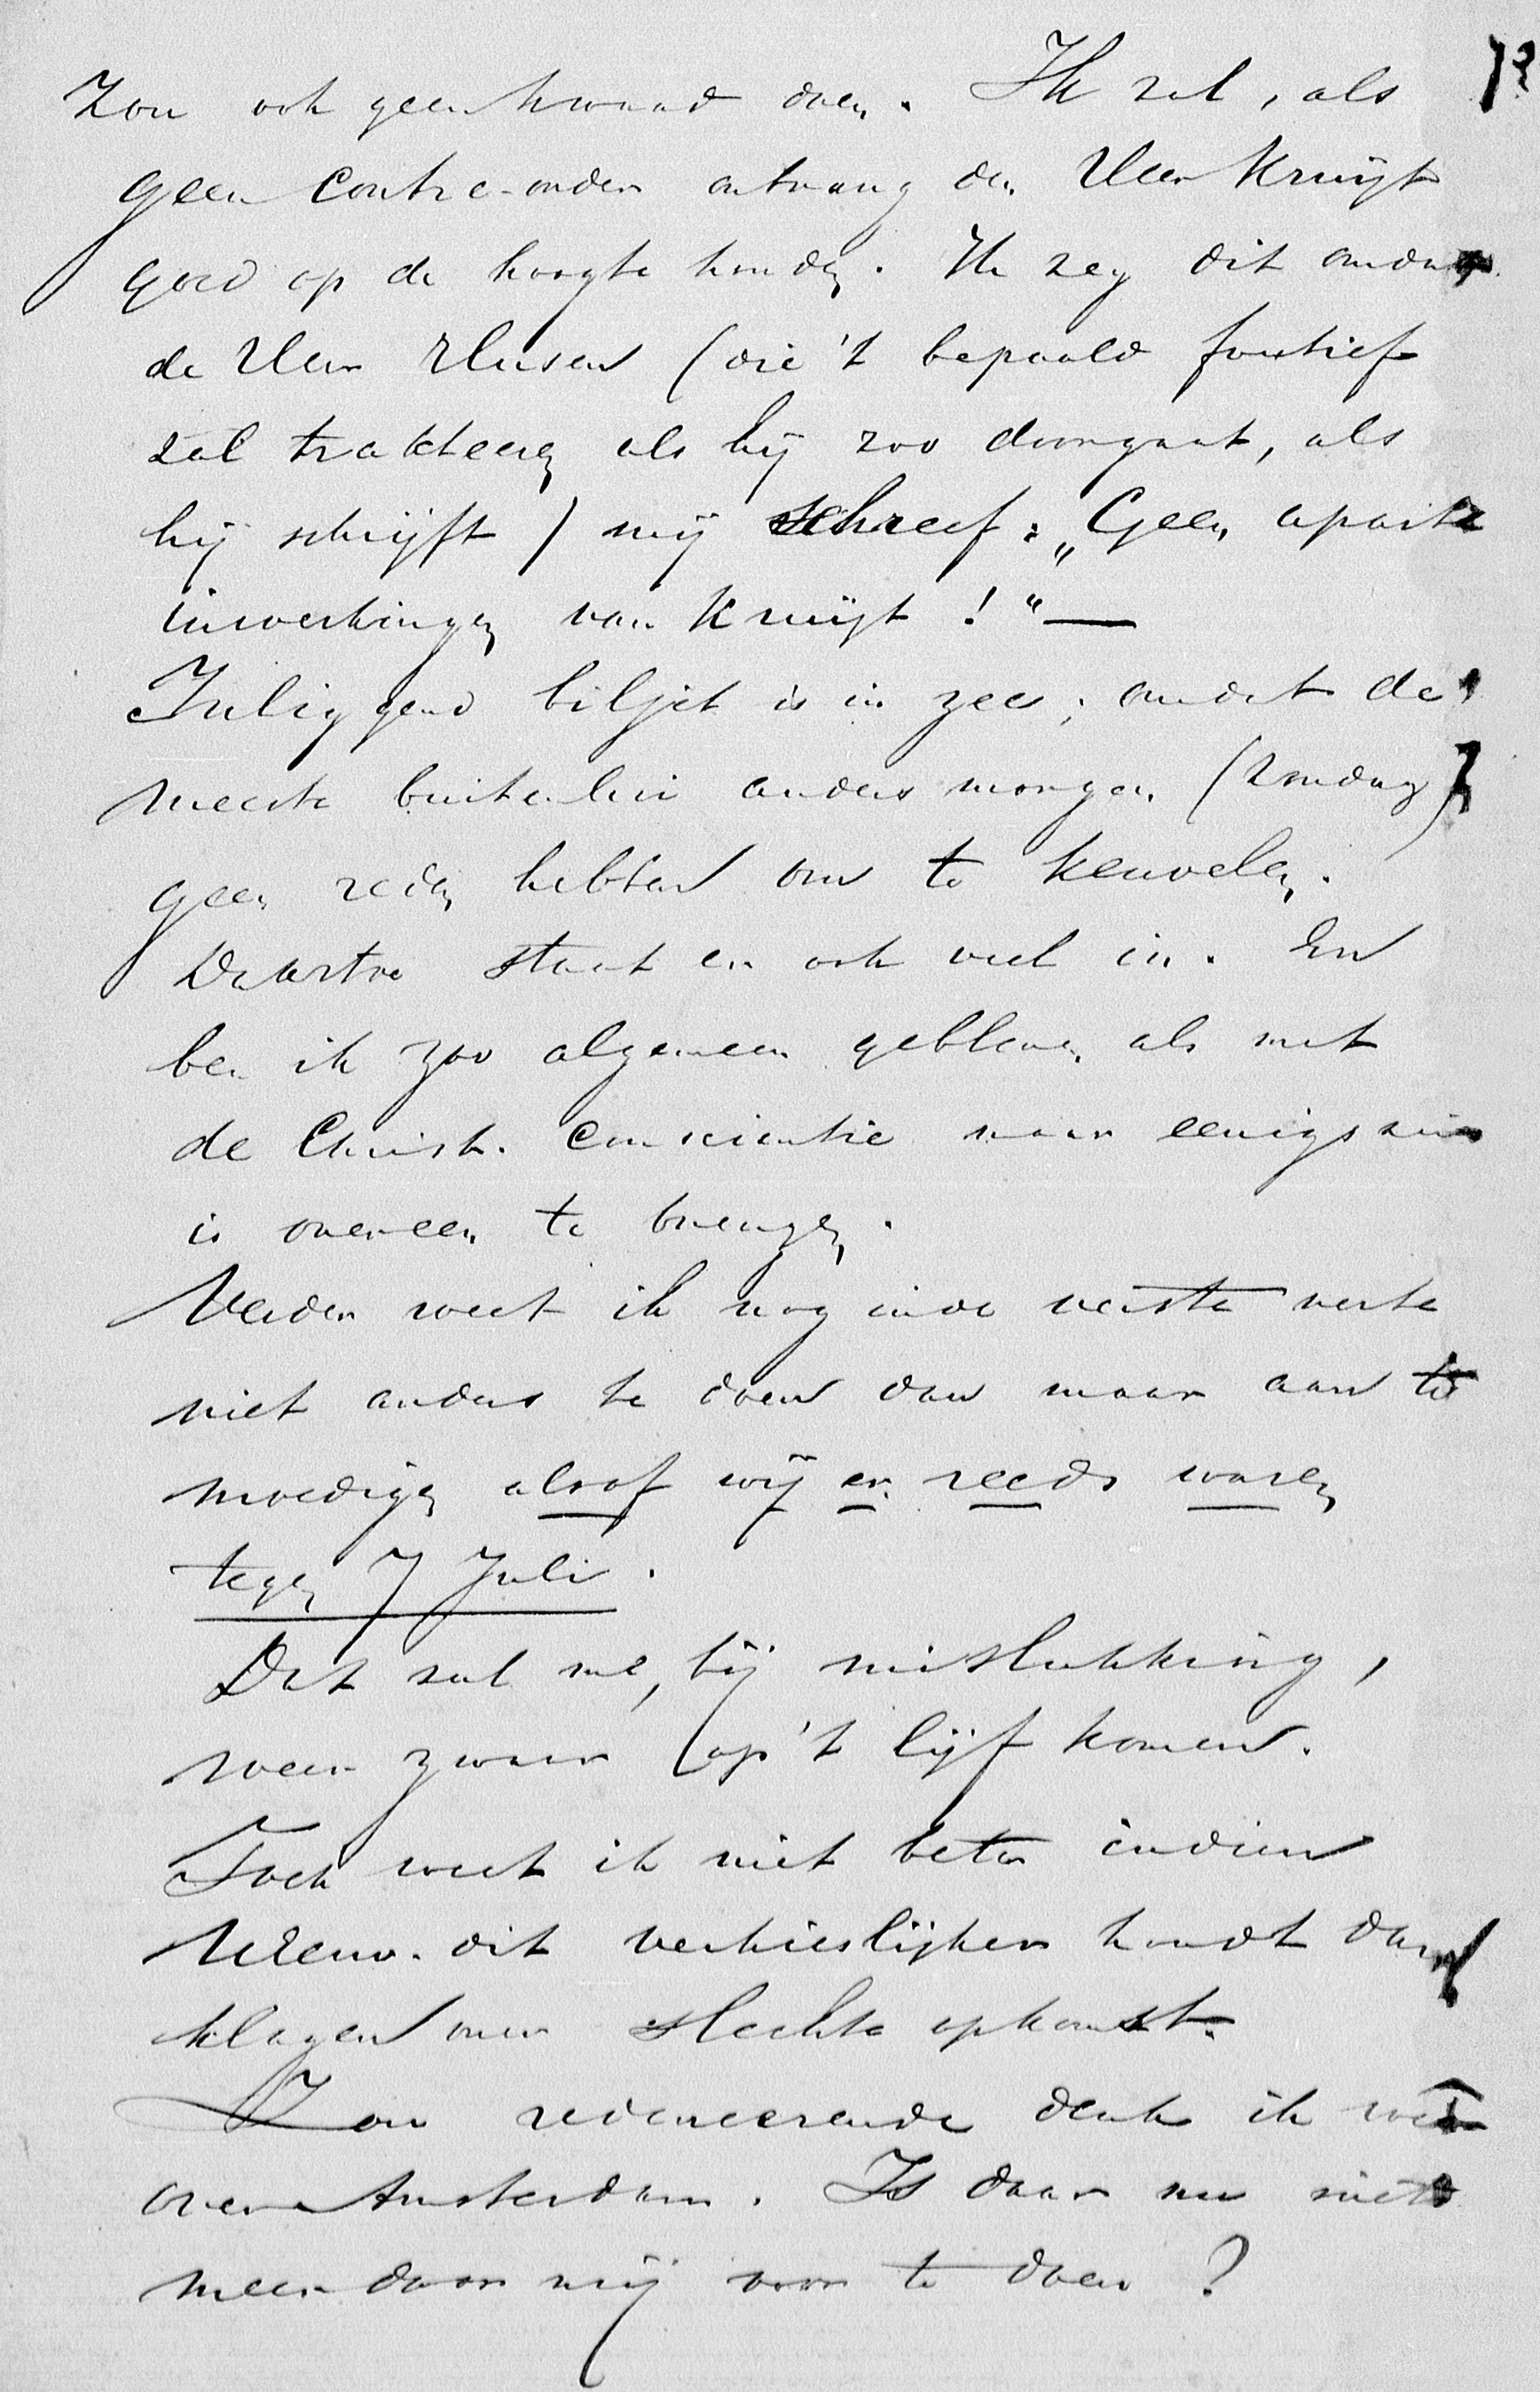 Zou ook geen kwaad doen. Ik zal, als
geen contre-order ontvang den Heer Kruijt
goed op de hoogte houden. Ik zeg dit omdat
de Heer (die 't bepaald foutief
zal trakteeren als hij zoo doorgaat, als
hij schrijft) mij schreef: „Geen aparte
inwerkingen van Kruijt!“—
Inliggend biljet is in zee; omdat de
meeste buitenlui anders morgen (Zondag)
geen reden hebben om te keuvelen.
Daartoe staat er ook veel in. En
ben ik zoo algemeen gebleven als met
de Christ. conscientie maar eenigszins
is overeen te brengen.
Verder weet ik nog in de verste verte
niet anders te doen dan maar aan te
moedigen alsof wij er reeds waren
tegen 7 Juli.
Dat zal me, bij mislukking,
weer zwaar op 't lijf komen.
Toch weet ik niet beter indien
dit verkieslijker houdt dan
klagen over slechte opkomst.
Zou redeneerende denk ik weer
over Amsterdam. Is daar nu niets
meer door mij voor te doen?